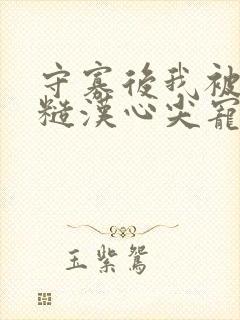 守寡後我被
糙漢心尖寵
玉紫鴛